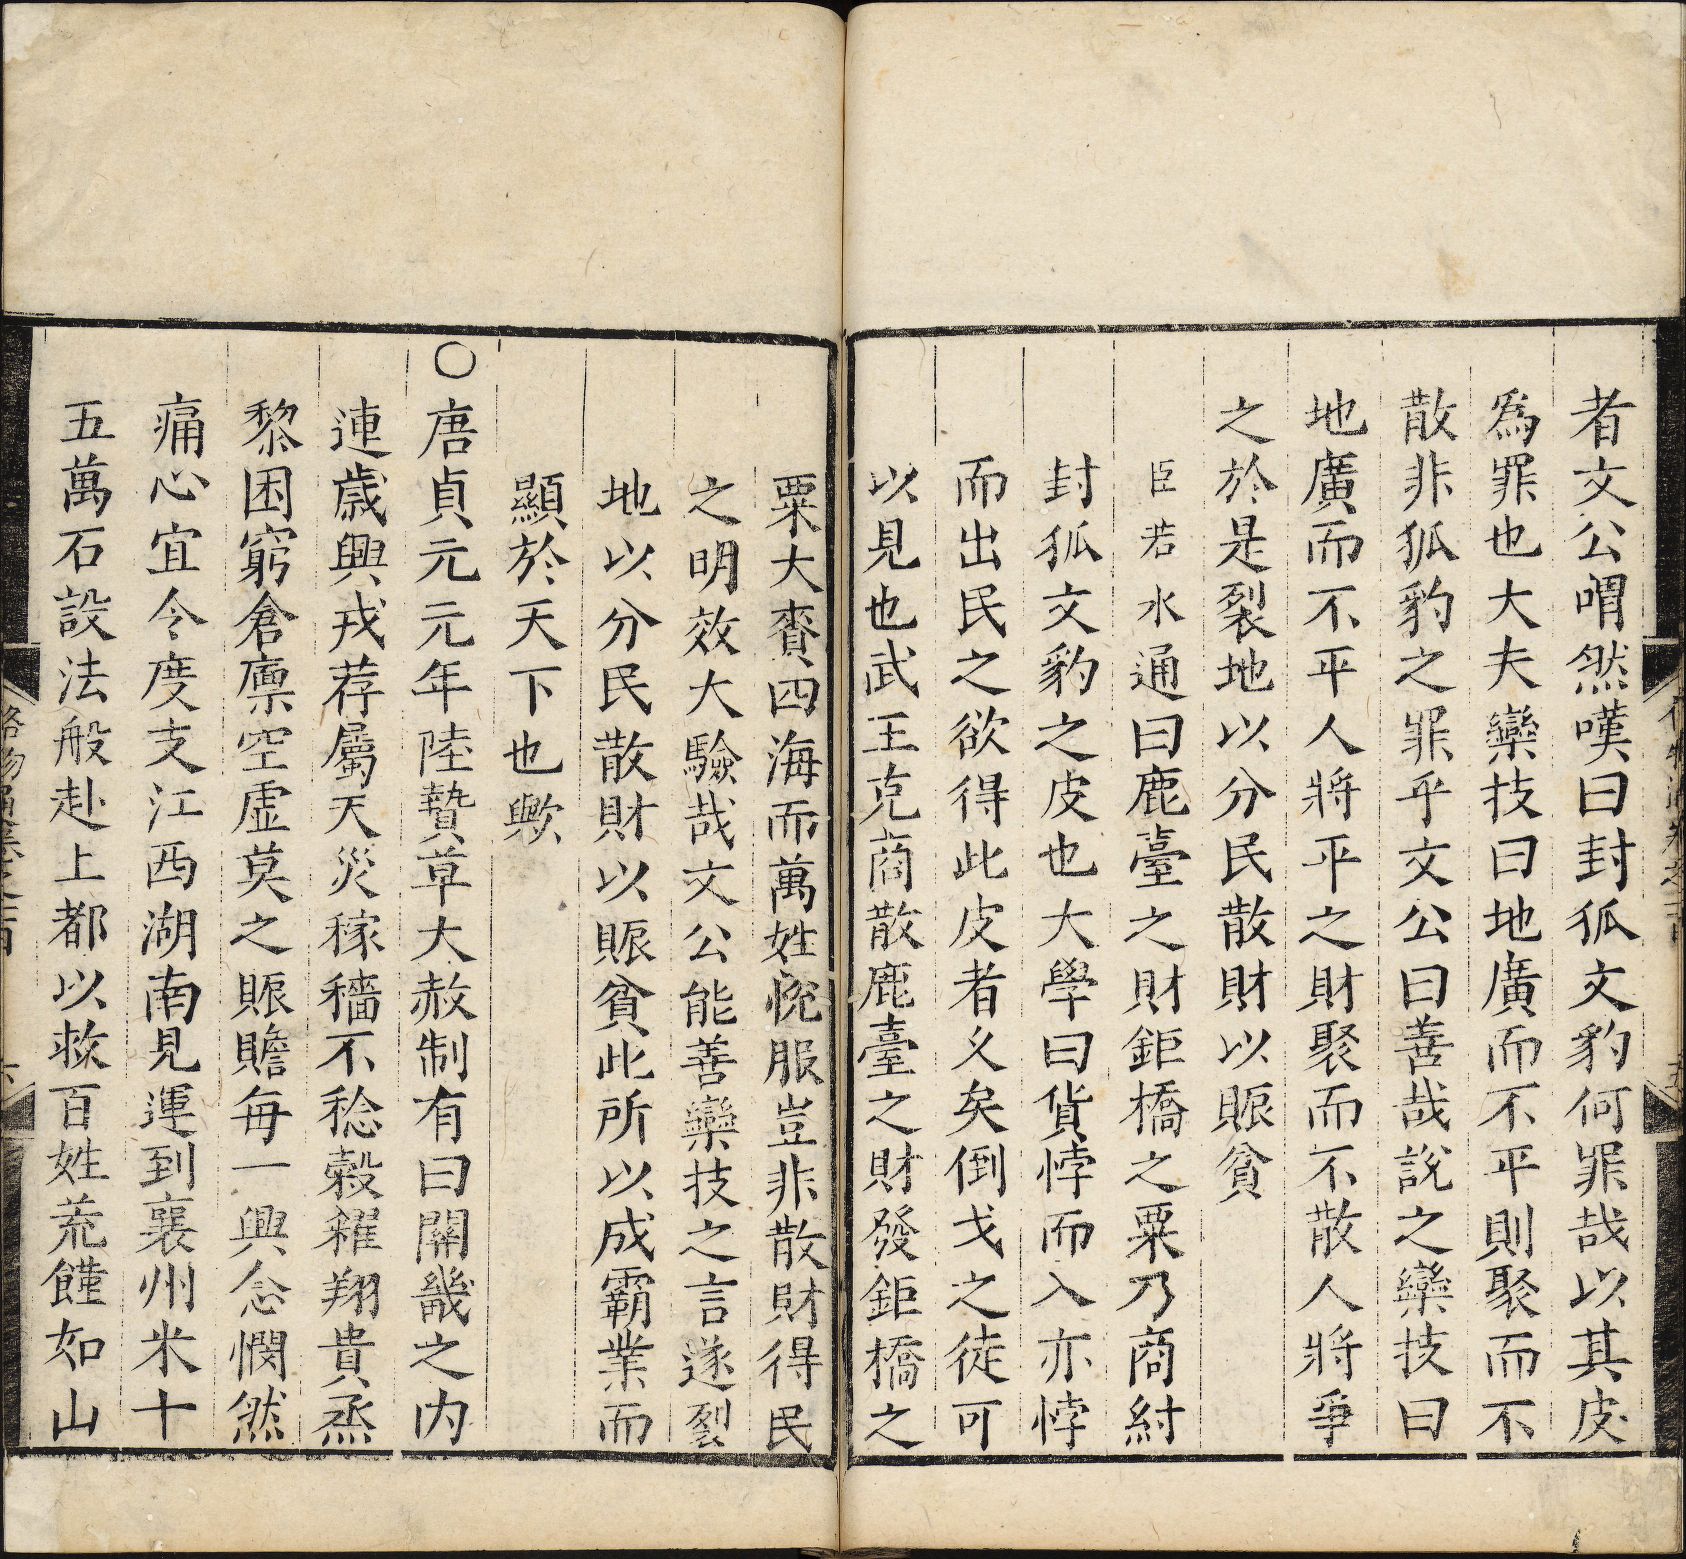 者文公喟然嘆曰封狐文豹何罪哉以其皮
為罪也大夫欒技曰地廣而不平則聚而不
散非狐豹之罪乎文公曰善哉說之欒技曰
地廣而不平人將平之財聚而不散人將爭
之於是裂地以分民散財以賑貧
臣若水通曰鹿臺之財鉅橋之粟乃商紂
封狐文豹之皮也大學曰貨悖而入亦悖
而出民之欲得此皮者乆矣倒戈之徒可
以見也武王克商散鹿臺之財發鉅橋之
粟大賚四海而萬姓悅服豈非散財得民
之明效大驗哉文公能善欒技之言遂裂
地以分民散財以賑貧此所以成霸業而
顯於天下也歟
○唐貞元元年陸贄草大赦制有曰關畿之内
連歲興戎荐屬天災稼穡不稔榖糴翔貴烝
黎困窮倉廪空虛莫之賑贍每一興念憫然
痛心宜令度支江西湖南見運到襄州米十
五萬石設法般赴上都以救百姓荒饉如山